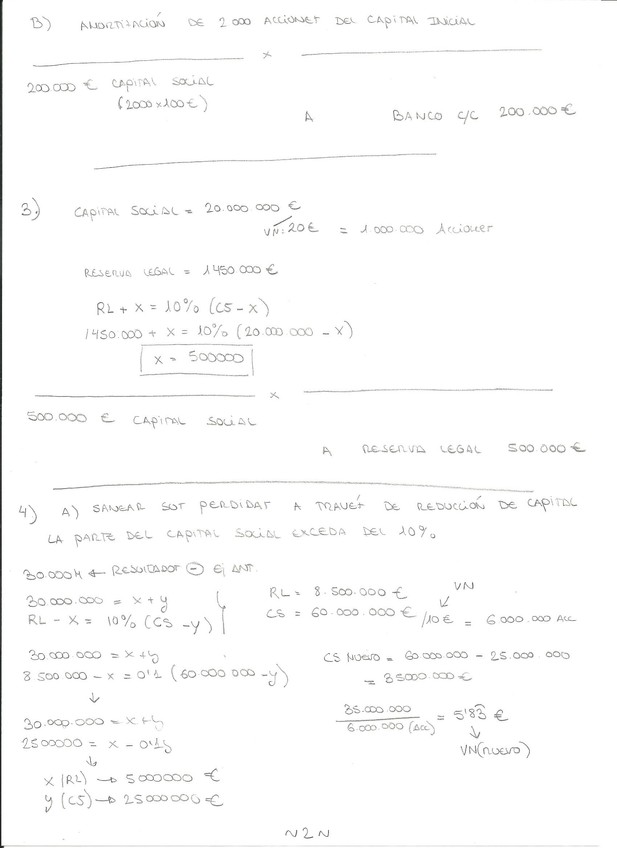 B) AMORTIZACIÓN DE 2 000 ACCIONES DEL CAPITAL INICIAL
x
200.000 € CAPITAL SOCIAL
(2000 x 100 €)
A BANCO C/C 200.000 €
3.) CAPITAL SOCIAL = 20.000 000 €
VN = 20 € = 1 000.000 Acciones
RESERVA LEGAL = 1 450.000 €
RL + X = 10% (CS - X)
1450.000 + X = 10% (20.000 000 - X)
X = 500000
x
500.000 € CAPITAL SOCIAL
A RESERVA LEGAL 500.000 €
4) A) SANEAR SUS PERDIDAS A TRAVÉS DE REDUCCIÓN DE CAPITAL
LA PARTE DEL CAPITAL SOCIAL EXCEDA DEL 10%
30.000 M ← RESULTADOS ⊖ EJ ANT.
30.000.000 = x + y
RL - X = 10% (CS - y)
RL = 8.500.000 €
VN
CS = 60.000.000 € /10 € = 6 000.000 ACC
30 000 000 = x + y
8 500 000 - x = 0'1 (60 000 000 - y)
↓
30.000.000 = x + y
2500000 = x - 0'1y
↓
X (RL) → 5000000 €
y (CS) → 25 000000 €
CS NUEVO = 60 000 000 - 25.000.000
= 35000.000 €
35.000.000
6.000.000 (ACC) = 5'83 €
↓
VN (NUEVO)
~ 2 ~